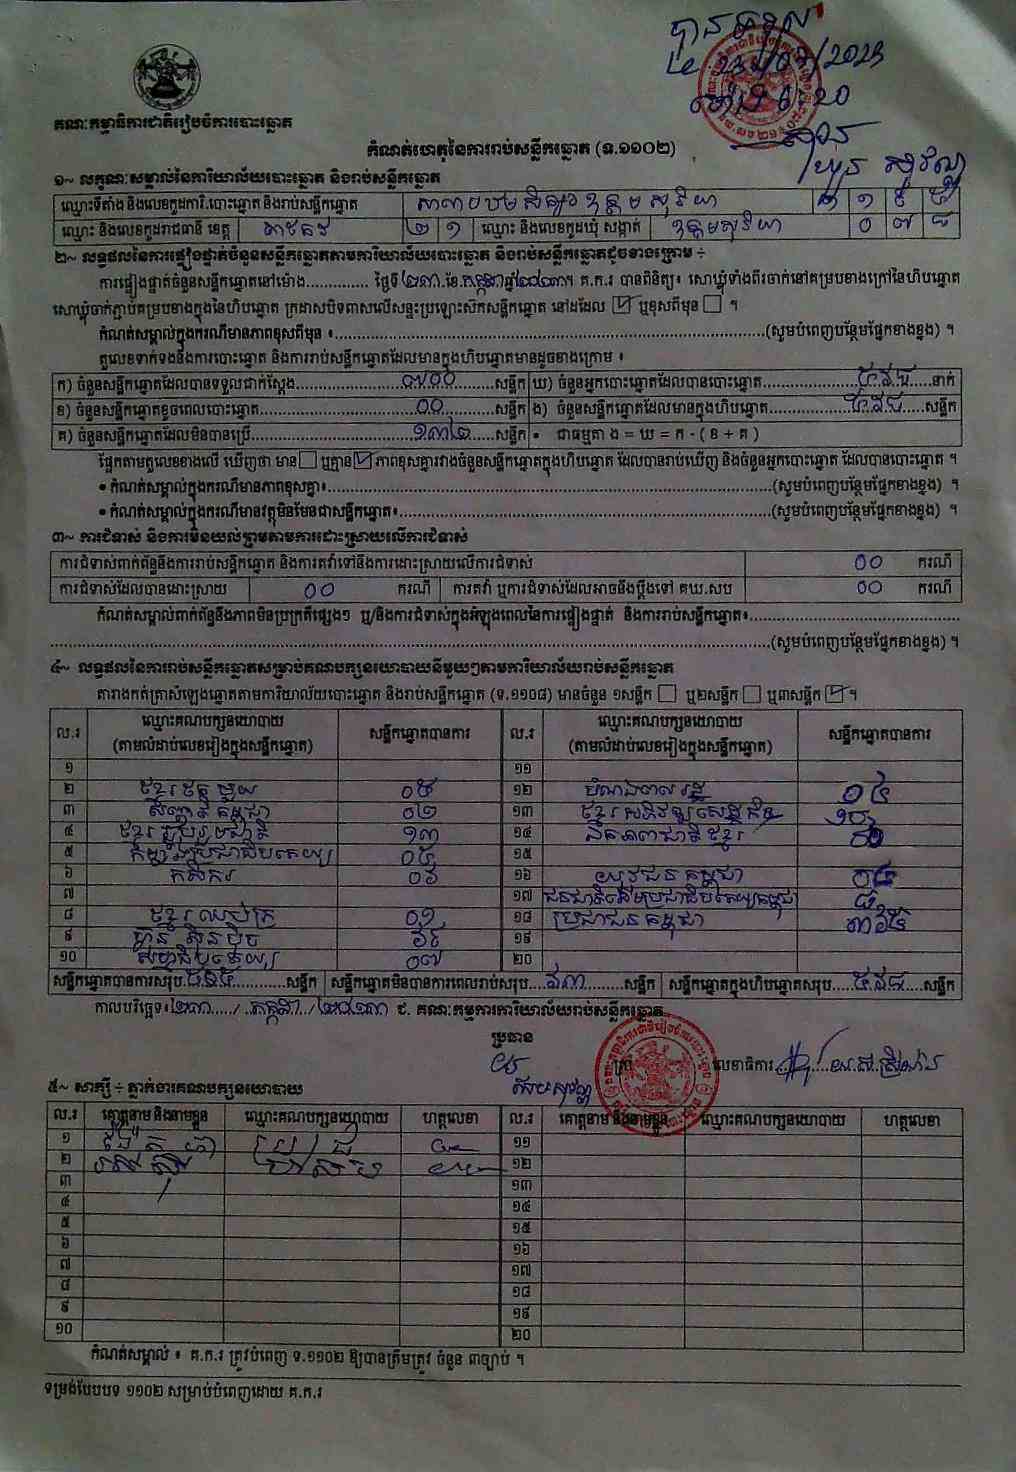 បានទទួល
23/07/2023
6:20
គណៈកម្មាធិការជាតិរៀបចំការបោះឆ្នោត
កំណត់ហេតុនៃការរាប់សន្លឹកឆ្នោត (ទ.១១០២)
១~ លក្ខណៈសម្គាល់នៃការិយាល័យបោះឆ្នោត និងរាប់សន្លឹកឆ្នោត
ឈ្មោះទីតាំង និងលេខកូដការិ.បោះឆ្នោត និងរាប់សន្លឹកឆ្នោត
ឈ្មោះ និងលេខកូដរាជធានី ខេត្ត តាកែវ ២ ១ ឈ្មោះ និងលេខកូដឃុំ សង្កាត់ ឧត្តមសុរិយា ០ ៧ ៨
២~ លទ្ធផលនៃការផ្ទៀងផ្ទាត់ចំនួនសន្លឹកឆ្នោតតាមការិយាល័យបោះឆ្នោត និងរាប់សន្លឹកឆ្នោតដូចខាងក្រោម ÷
ការផ្ទៀងផ្ទាត់ចំនួនសន្លឹកឆ្នោតនៅម៉ោង............. ថ្ងៃទី ២៣ ខែ កក្កដា ឆ្នាំ ២០២៣។ គ.ក.រ បានពិនិត្យ៖ សោឃ្លុំទាំងពីរចាក់នៅគម្របខាងក្រៅនៃហិបឆ្នោត
សោឃ្លុំចាក់ភ្ជាប់គម្របខាងក្នុងនៃហិបឆ្នោត ក្រដាសបិទពាសលើសន្ទះប្រឡោះសិកសន្លឹកឆ្នោត នៅដដែល ☑ ឬខុសពីមុន ☐ ។
កំណត់សម្គាល់ក្នុងករណីមានភាពខុសពីមុន ៖..............(សូមបំពេញបន្ថែមផ្នែកខាងខ្នង) ។
តួលេខទាក់ទងនឹងការបោះឆ្នោត និងការរាប់សន្លឹកឆ្នោតដែលមានក្នុងហិបឆ្នោតមានដូចខាងក្រោម ៖
ក) ចំនួនសន្លឹកឆ្នោតដែលបានទទួលជាក់ស្តែង....៧០០....សន្លឹក ឃ) ចំនួនអ្នកបោះឆ្នោតដែលបានបោះឆ្នោត....៥៦៨....នាក់
ខ) ចំនួនសន្លឹកឆ្នោតខូចពេលបោះឆ្នោត....០០....សន្លឹក ង) ចំនួនសន្លឹកឆ្នោតដែលមានក្នុងហិបឆ្នោត....៥៦៨....សន្លឹក
គ) ចំនួនសន្លឹកឆ្នោតដែលមិនបានប្រើ....១៣២....សន្លឹក • ជាធម្មតា ង = ឃ = ក - ( ខ + គ )
ផ្អែកតាមតួលេខខាងលើ ឃើញថា មាន ☐ ឬគ្មាន ☑ ភាពខុសគ្នារវាងចំនួនសន្លឹកឆ្នោតក្នុងហិបឆ្នោត ដែលបានរាប់ឃើញ និងចំនួនអ្នកបោះឆ្នោត ដែលបានបោះឆ្នោត ។
• កំណត់សម្គាល់ក្នុងករណីមានភាពខុសគ្នា៖..............(សូមបំពេញបន្ថែមផ្នែកខាងខ្នង) ។
• កំណត់សម្គាល់ក្នុងករណីមានវត្ថុមិនមែនជាសន្លឹកឆ្នោត៖..............(សូមបំពេញបន្ថែមផ្នែកខាងខ្នង) ។
៣~ ការជំទាស់ និងការមិនយល់ព្រមតាមការដោះស្រាយលើការជំទាស់
ការជំទាស់ពាក់ព័ន្ធនឹងការរាប់សន្លឹកឆ្នោត និងការតវ៉ាទៅនឹងការដោះស្រាយលើការជំទាស់ ០០ ករណី
ការជំទាស់ដែលបានដោះស្រាយ ០០ ករណី ការតវ៉ា ឬការជំទាស់ដែលអាចនឹងប្តឹងទៅ គឃ.សប ០០ ករណី
កំណត់សម្គាល់ពាក់ព័ន្ធនឹងភាពមិនប្រក្រតីផ្សេងៗ ឬ/និងការជំទាស់ក្នុងអំឡុងពេលនៃការផ្ទៀងផ្ទាត់ និងការរាប់សន្លឹកឆ្នោត៖..............
..............(សូមបំពេញបន្ថែមផ្នែកខាងខ្នង) ។
៤~ លទ្ធផលនៃការរាប់សន្លឹកឆ្នោតសម្រាប់គណបក្សនយោបាយនីមួយៗតាមការិយាល័យរាប់សន្លឹកឆ្នោត
តារាងកត់ត្រាសំឡេងឆ្នោតតាមការិយាល័យបោះឆ្នោត និងរាប់សន្លឹកឆ្នោត (ទ.១១០៨) មានចំនួន ១សន្លឹក ☐ ឬ២សន្លឹក ☐ ឬ៣សន្លឹក ☑ ។
ល.រ ឈ្មោះគណបក្សនយោបាយ សន្លឹកឆ្នោតបានការ ល.រ ឈ្មោះគណបក្សនយោបាយ សន្លឹកឆ្នោតបានការ
(តាមលំដាប់លេខរៀងក្នុងសន្លឹកឆ្នោត) (តាមលំដាប់លេខរៀងក្នុងសន្លឹកឆ្នោត)
១ ១១
២ ខ្មែរតែមួយ ០៥ ១២ បំណងពលរដ្ឋ ០៤
៣ សំបុកឃ្មុំ ០២ ១៣
៤ ខ្មែររួបរួមជាតិ ១៣ ១៤ ឯកភាពជាតិខ្មែរ
៥ កម្លាំងប្រជាធិបតេយ្យ ០៥ ១៥
៦ កសិករ ០៦ ១៦ យុវជនកម្ពុជា ០៤
៧ ១៧ ជនជាតិដើមប្រជាធិបតេយ្យកម្ពុជា
៨ ខ្មែរឈប់ក្រ ០១ ១៨ ប្រជាជនកម្ពុជា ៣៦៥
៩ ហ្វ៊ុនស៊ិនប៉ិច ៦៩ ១៩
១០ ០៧ ២០
សន្លឹកឆ្នោតបានការសរុប..............សន្លឹក សន្លឹកឆ្នោតមិនបានការពេលរាប់សរុប..............សន្លឹក សន្លឹកឆ្នោតក្នុងហិបឆ្នោតសរុប....៥៦៨....សន្លឹក
កាលបរិច្ឆេទ៖ ២៣ / កក្កដា / ២០២៣ ជ. គណៈកម្មការការិយាល័យរាប់សន្លឹកឆ្នោត
ប្រធាន
ត្រា លេខាធិការ
៥~ សាក្សី ÷ ភ្នាក់ងារគណបក្សនយោបាយ
ល.រ គោត្តនាម និងនាមខ្លួន ឈ្មោះគណបក្សនយោបាយ ហត្ថលេខា ល.រ គោត្តនាម និងនាមខ្លួន ឈ្មោះគណបក្សនយោបាយ ហត្ថលេខា
១ ១១
២ ១២
៣ ១៣
៤ ១៤
៥ ១៥
៦ ១៦
៧ ១៧
៨ ១៨
៩ ១៩
១០ ២០
កំណត់សម្គាល់ ៖ គ.ក.រ ត្រូវបំពេញ ទ.១១០២ ឱ្យបានត្រឹមត្រូវ ចំនួន ៣ច្បាប់ ។
ទម្រង់បែបបទ ១១០២ សម្រាប់បំពេញដោយ គ.ក.រ